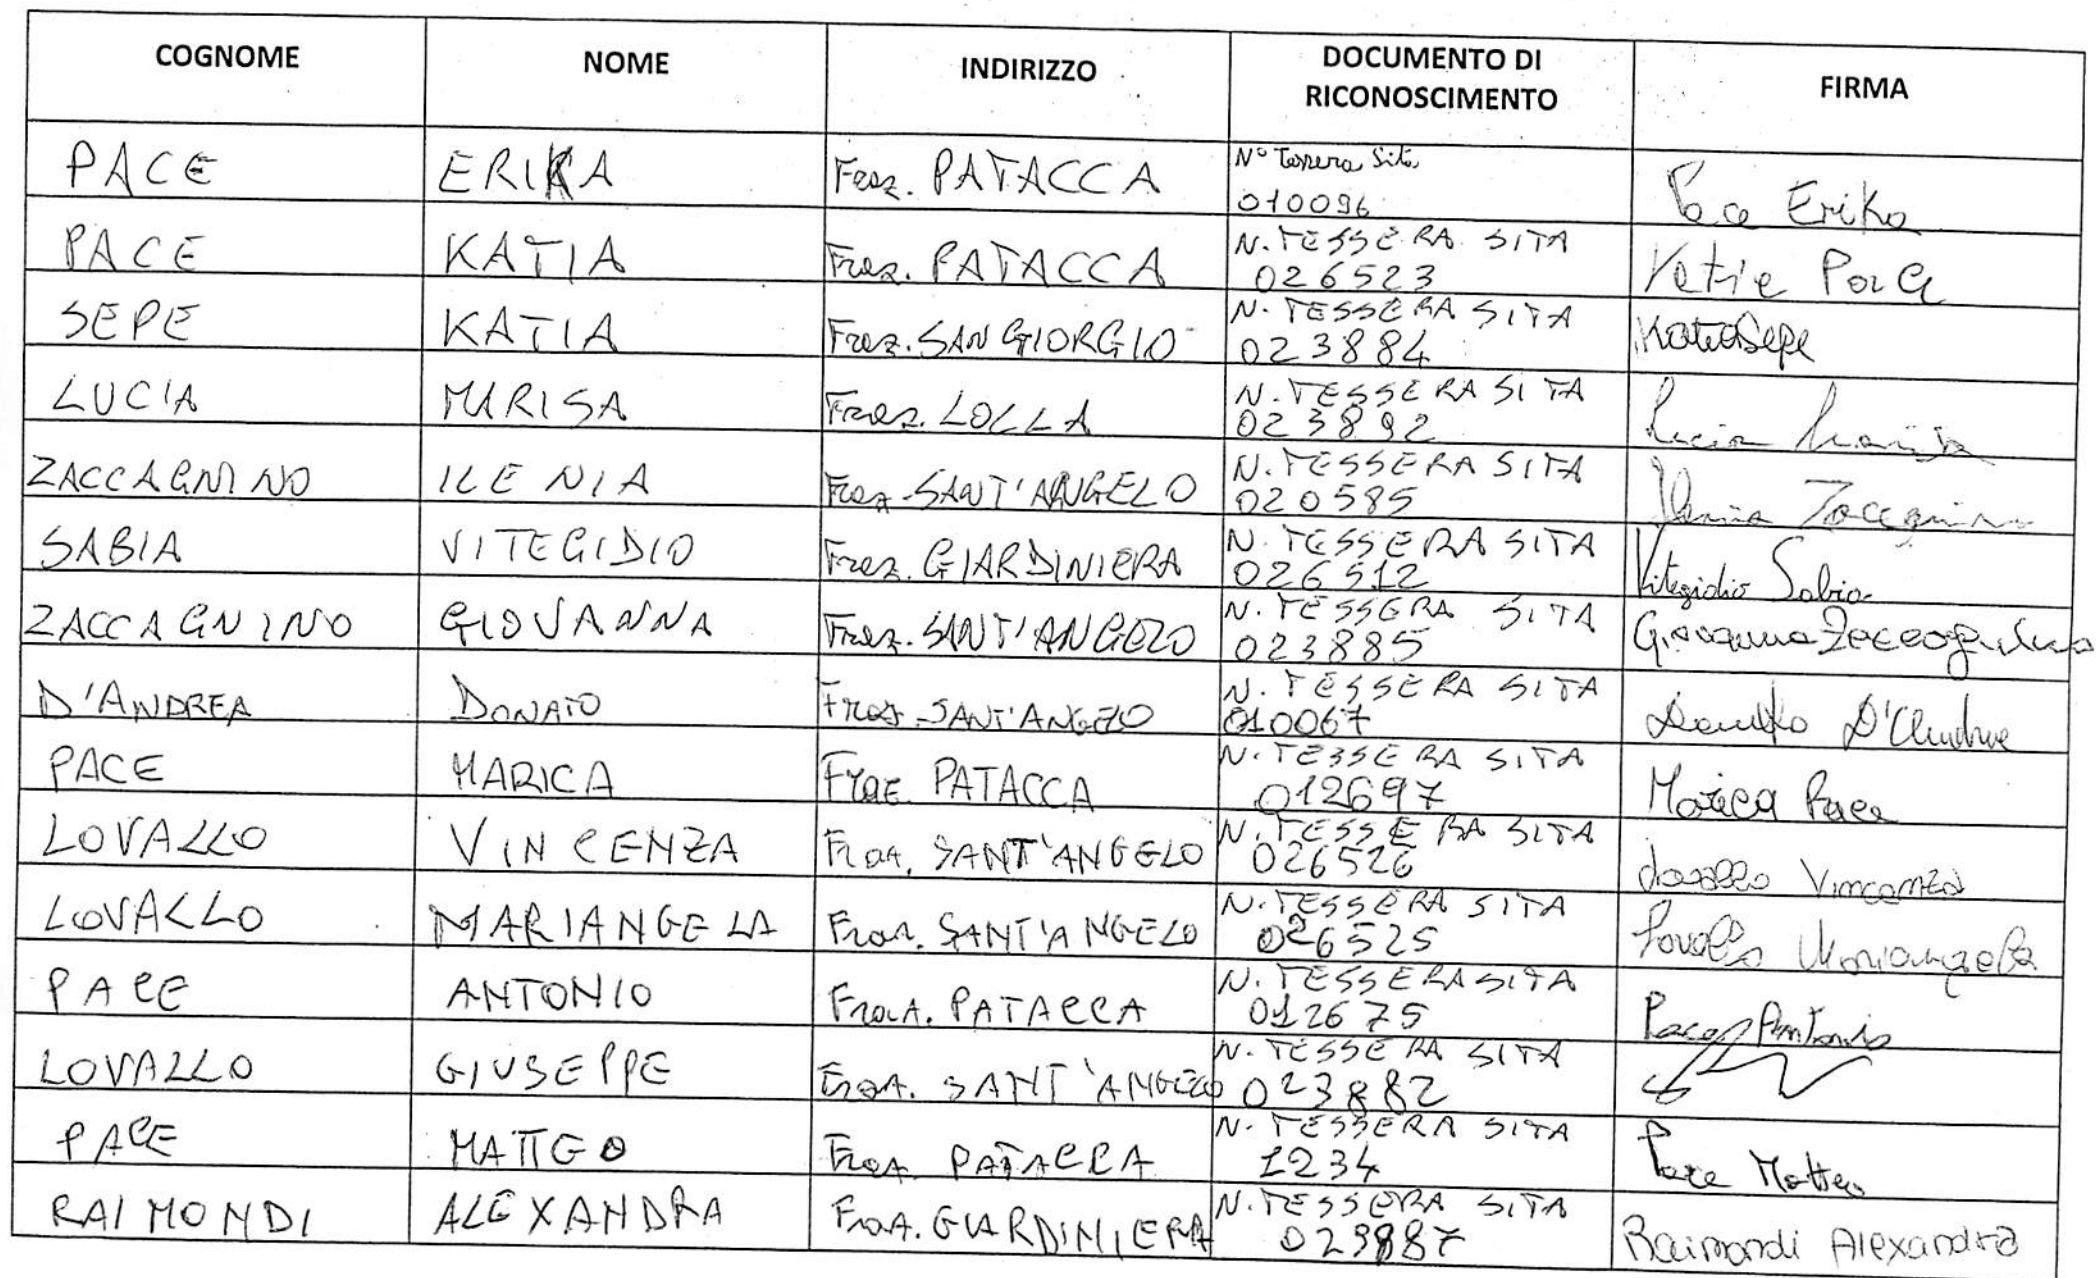 COGNOME NOME INDIRIZZO DOCUMENTO DI RICONOSCIMENTO FIRMA
PACE ERIKA Fraz. PATACCA N° Tessera Sita 010096 Pace Erika
PACE KATIA Fraz. PATACCA N. TESSERA SITA 026523 Katia Pace
SEPE KATIA Fraz. SAN GIORGIO N. TESSERA SITA 023884 Katia Sepe
LUCIA MARISA Fraz. LOLLA N. TESSERA SITA 023892 Lucia Marisa
ZACCAGNINO ILENIA Fraz. SANT'ANGELO N. TESSERA SITA 020585 Ilenia Zaccagnino
SABIA VITEGIDIO Fraz. GIARDINIERA N. TESSERA SITA 026512 Vitegidio Sabia
ZACCAGNINO GIOVANNA Fraz. SANT'ANGELO N. TESSERA SITA 023885 Giovanna Zaccagnino
D'ANDREA DONATO Fraz. SANT'ANGELO N. TESSERA SITA 010067 Donato D'Andrea
PACE MARICA Fraz. PATACCA N. TESSERA SITA 012697 Marica Pace
LOVALLO VINCENZA Fraz. SANT'ANGELO N. TESSERA SITA 026526 Lovallo Vincenza
LOVALLO MARIANGELA Fraz. SANT'ANGELO N. TESSERA SITA 026525 Lovallo Mariangela
PACE ANTONIO Fraz. PATACCA N. TESSERA SITA 012675 Pace Antonio
LOVALLO GIUSEPPE Fraz. SANT'ANGELO N. TESSERA SITA 023882
PACE MATTEO Fraz. PATACCA N. TESSERA SITA 1234 Pace Matteo
RAIMONDI ALEXANDRA Fraz. GIARDINIERA N. TESSERA SITA Raimondi Alexandra